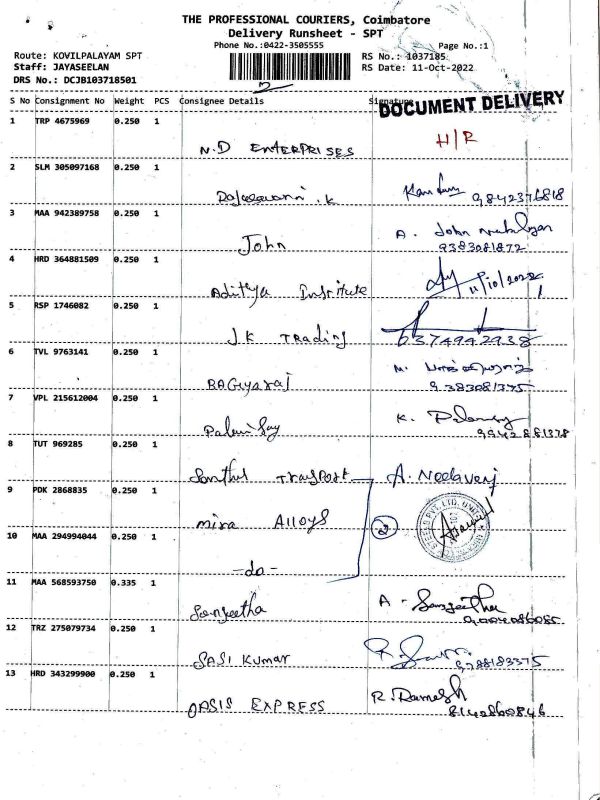 THE PROFESSIONAL COURIERS, Coimbatore
Delivery Runsheet - SPT
Phone No.:0422-3505555
Page No.:1
Route: KOVILPALAYAM SPT
RS No.: 1037185
Staff: JAYASEELAN
RS Date: 11-Oct-2022
DRS No.: DCJB103718501
S No Consignment No Weight PCS Consignee Details Signature
DOCUMENT DELIVERY
1 TRP 4675969 0.250 1
N.D ENTERPRISES H/R
2 SLM 305097168 0.250 1
K 9842376818
3 MAA 942389758 0.250 1
John A. John
9383081872
4 HRD 364881509 0.250 1
Aditya Institute 11/10/2022
5 RSP 1746082 0.250 1
J.K Trading 6374942938
6 TVL 9763141 0.250 1
BAGyaraj M.
9383081375
7 VPL 215612004 0.250 1
K.
9942881378
8 TUT 969285 0.250 1
A. Neelaveni
9 PDK 2868835 0.250 1
mira Alloys 2
10 MAA 294994044 0.250 1
-do-
11 MAA 568593750 0.335 1
Sangeetha A - Sangeetha
12 TRZ 275079734 0.250 1
SASI Kumar
9788183375
13 HRD 343299900 0.250 1
OASIS EXPRESS R. Ramesh
8142860846